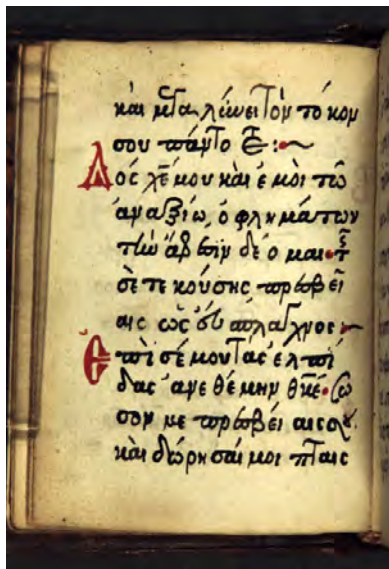 καὶ
σου
Δός χέ μου καὶ ἐμοὶ τῶ
ἀναξίω, ὀφλημάτων
τὴν ἄφεσιν δέομαι· τῆς
σὲ τεκούσης πρεσβεί
αις ὡς εὔσπλαγχνος:~
Ἐπὶ σέ μου τὰς ἐλπί
δας ἀνεθέμην θκε· σῶ
σόν με πρεσβείαις σου
καὶ δώρησαί μοι πταισ